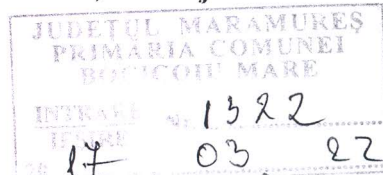 JUDEȚUL MARAMUREȘ
PRIMĂRIA COMUNEI
BOCICOIU MARE
INTRARE Nr. 1322
IEȘIRE
20 17 03 22